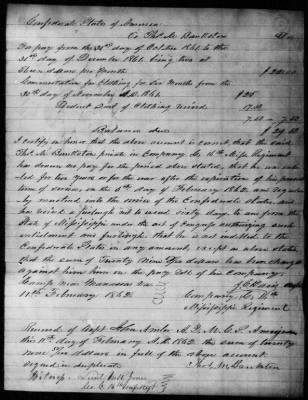 Confederate States of America
To Thos. M. Bankston Dr
To pay from the 31st day of October 1861 to the
31st day of December 1861 being two at
Eleven dollars per Month $ 22.00
Commutation for Clothing for Six Months from the
30th day of November A.D. 1861 $25
Deduct Amt of Clothing received 17.50
7.50 7.50
Balance due $ 29.50
I certify on honor that the above account is correct that the said
Thos. M. Bankston private in Company 16th Miss Regiment
has drawn no pay for the period above stated, that he was
for two years or for the war after the expiration of his present
term of service, on the day of February 1862 and regularly
mustered into the service of the Confederate States, and
has received a furlough not to exceed sixty days to and from the
State of Mississippi under the act of Congress authorizing such
enlistments and furloughs that he is not indebted to the
Confederate States in any amount, except as above stated
that the sum of Twenty Nine dollars has been charged
against him hence on the pay Roll of his Company.
Camp near Manassas Va
11th February 1862 Company 16th
Mississippi Regiment
Received of Capt A.Q.M. C.S. Army
this 11th day of February A.D. 1862 the sum of twenty
nine dollars in full of the above account
signed in duplicate Thos. M. Bankston
Witness Lieut
Co. 16th Miss Regt